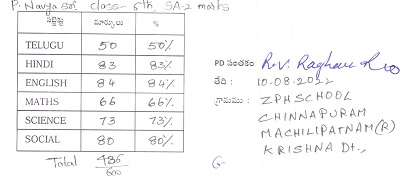 P. Navya Sri class- 6th, SA-2 marks
సబ్జెక్టు మార్కులు %
TELUGU 50 50%
HINDI 83 83%
ENGLISH 84 84%
MATHS 66 66%
SCIENCE 73 73%
SOCIAL 80 80%
Total 436/600
PD సంతకం R.V. Raghava Rao
తేది : 10.08.2022
గ్రామము : ZPHSCHOOL
CHINNAPURAM
MACHILIPATNAM(R)
KRISHNA Dt.,
G